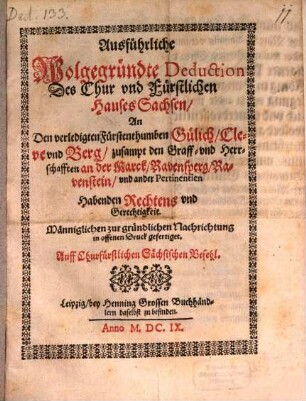 Ded. 133.
Ausführliche
Wolgegründte Deduction
Des Chur vnd Fürstlichen
Hauses Sachsen/
An
Den verledigten Fürstenthumben Gülich/ Cle-
ve vnd Berg/ zusampt den Graff- vnd Herr-
schafften an der Marck/ Ravensperg/ Ra-
venstein/ vnd ander Pertinentien
Habenden Rechtens vnd
Gerechtigkeit.
Männiglichen zur gründlichen Nachrichtung
in offenen Druck gefertiget.
Auff Churfürstlichen Sächsischen Befehl.
Leipzig/ bey Henning Grossen Buchhänd-
lern daselbst zu befinden.
Anno M. DC. IX.